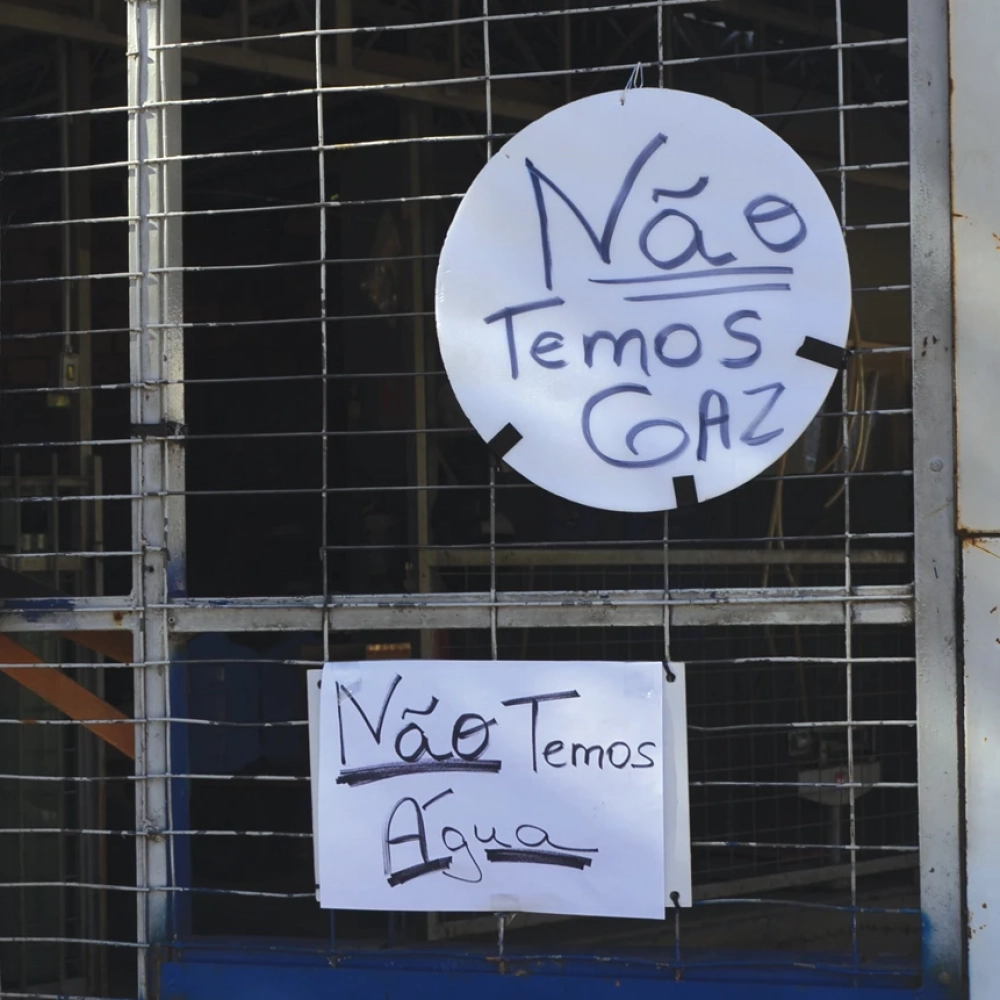 Não
Temos
GAZ
Não Temos
Água